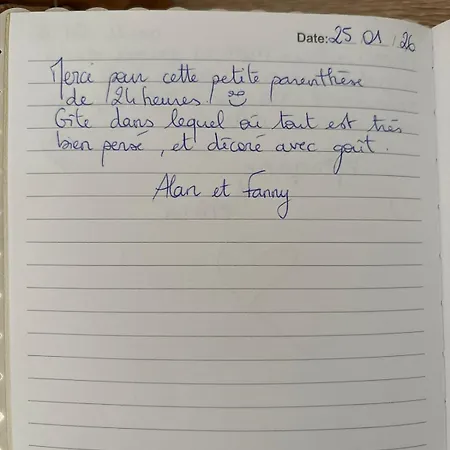 Date: 25 01 / 26
Merci pour cette petite parenthèse
de 24 heures !
Gîte dans lequel où tout est très
bien pensé, et décoré avec goût.
Alan et Fanny